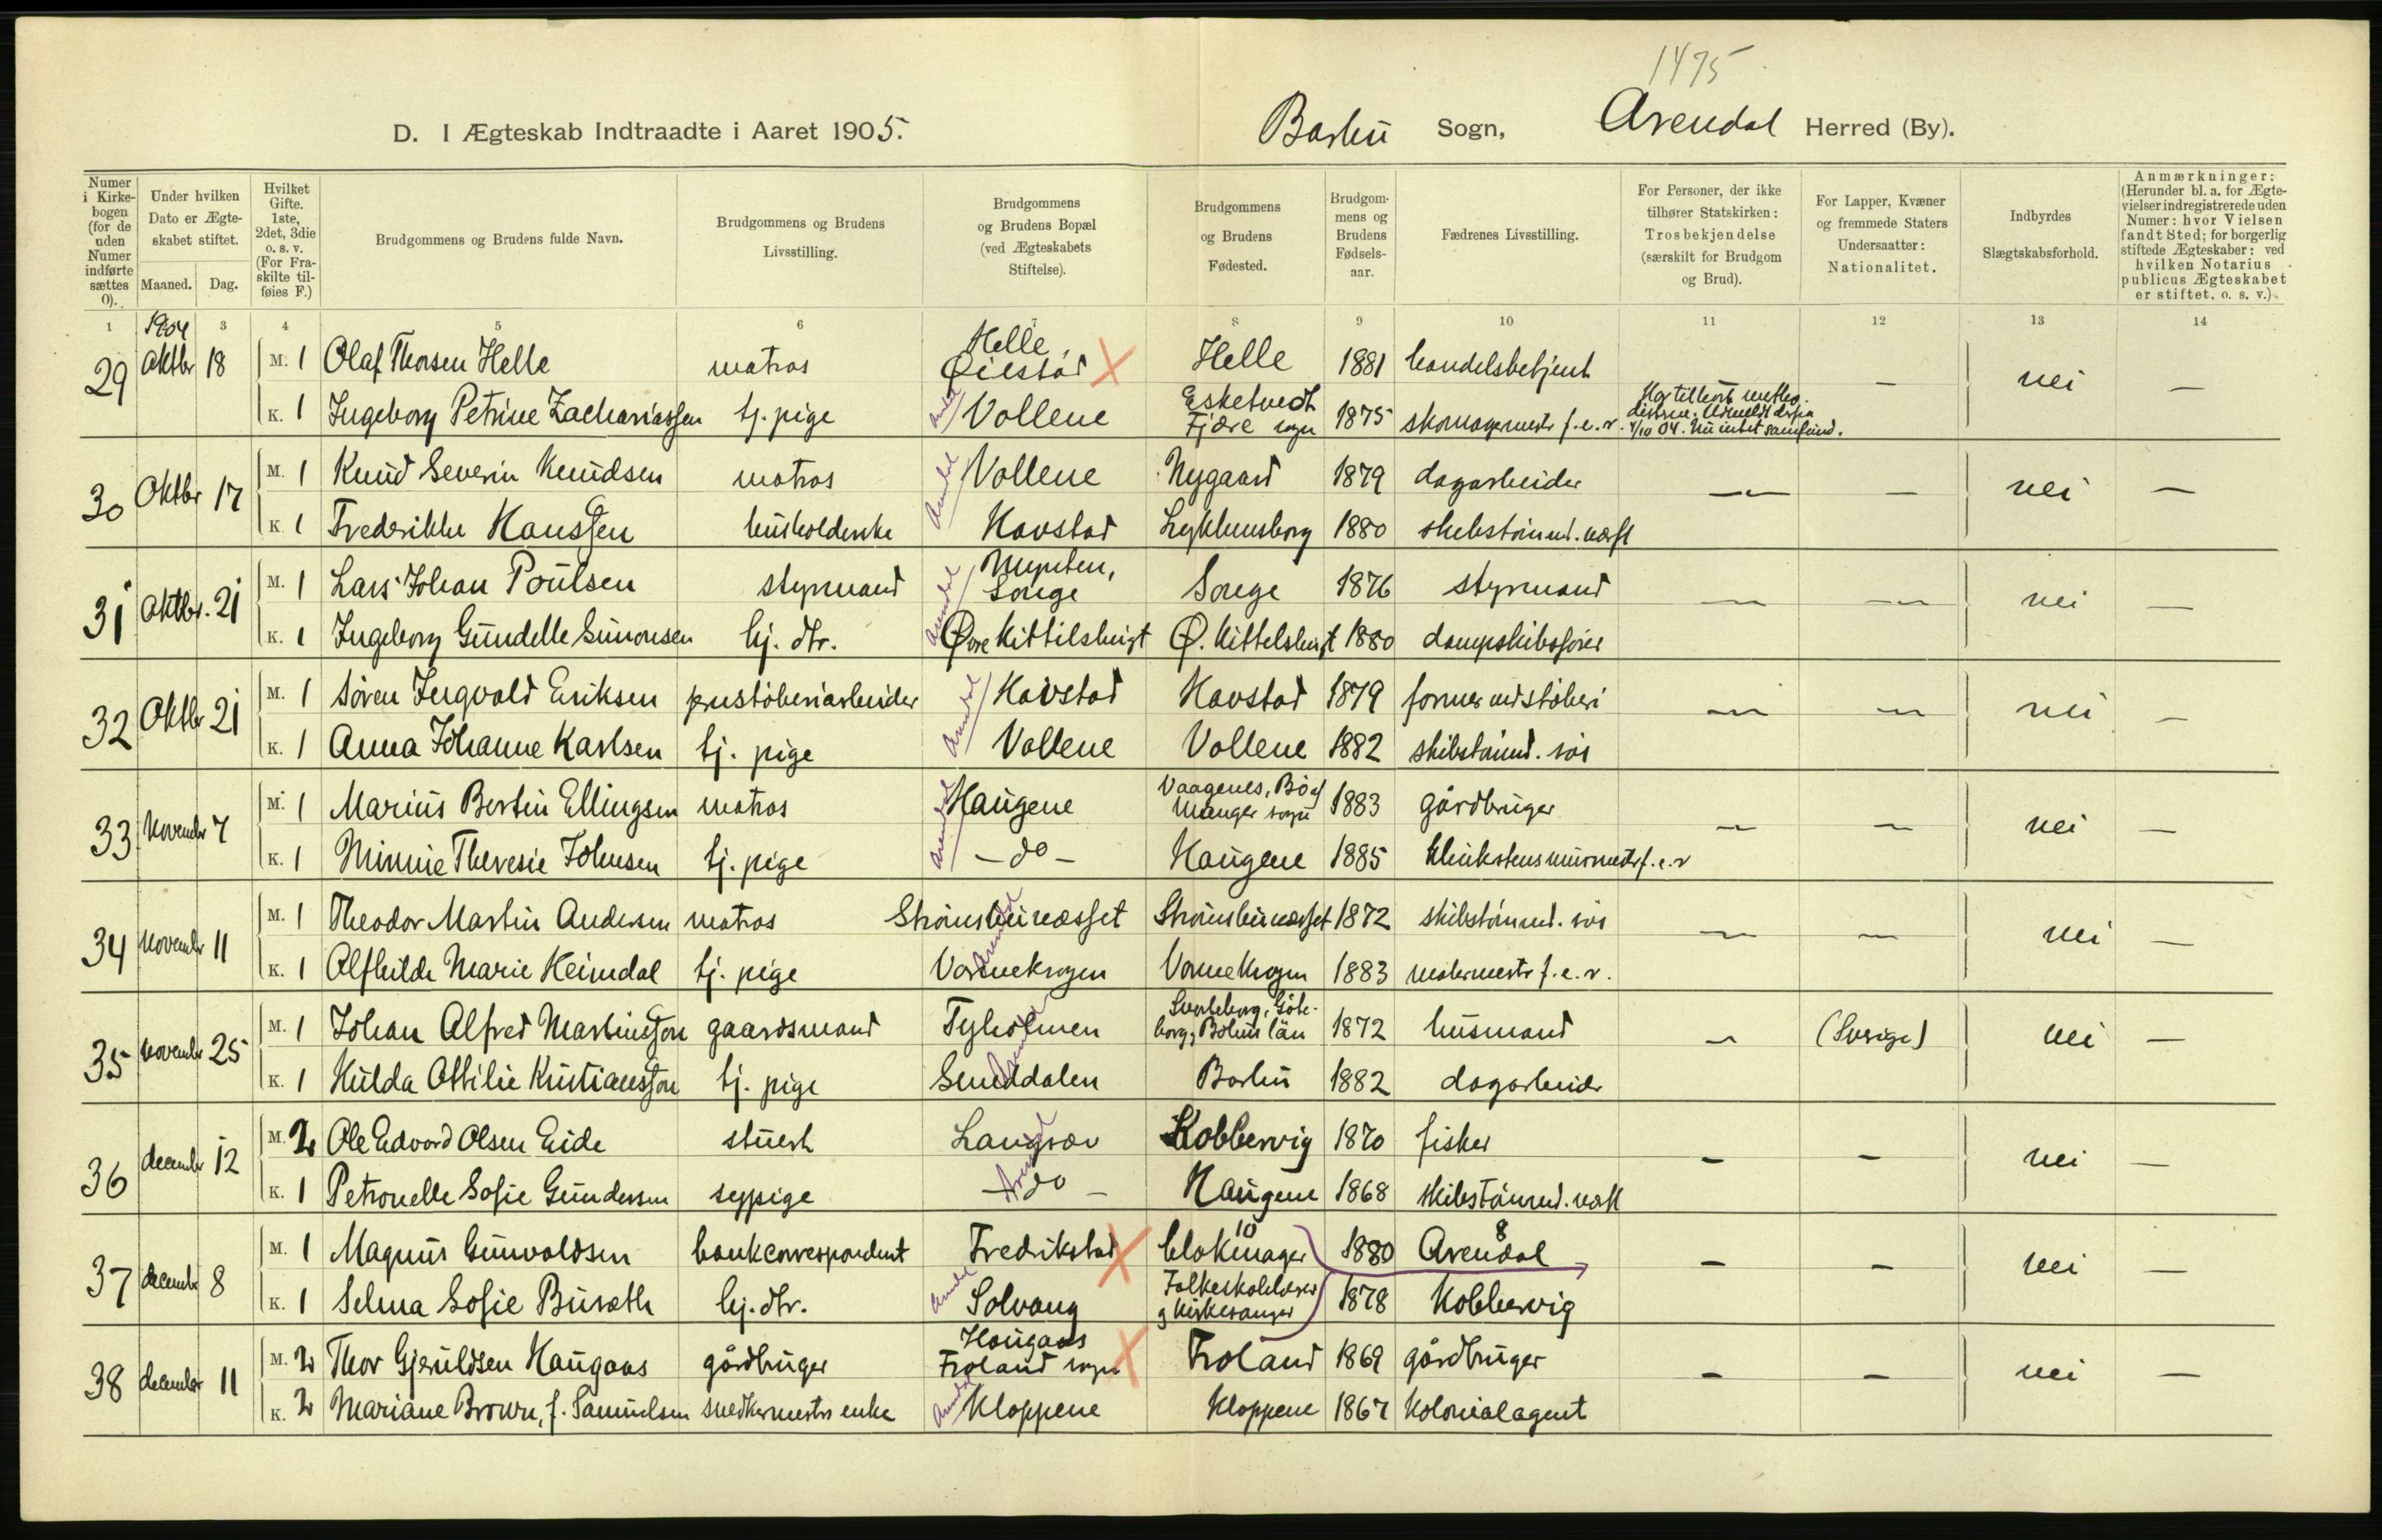 1475
D. I Ægteskab Indtraadte i Aaret 1905. Barbu Sogn, Arendal Herred (By).
Numer i Kirkebogen (for de uden Numer indførte sættes 0).
Under hvilken Dato er Ægteskabet stiftet.
Maaned. Dag.
Hvilket Gifte. 1ste, 2det, 3die o. s. v. (For Fraskilte tilføies F.)
Brudgommens og Brudens fulde Navn.
Brudgommens og Brudens Livsstilling.
Brudgommens og Brudens Bopæl (ved Ægteskabets Stiftelse).
Brudgommens og Brudens Fødested.
Brudgommens og Brudens Fødselsaar.
Fædrenes Livsstilling.
For Personer, der ikke tilhører Statskirken: Trosbekjendelse (særskilt for Brudgom og Brud).
For Lapper, Kvæner og fremmede Staters Undersaatter: Nationalitet.
Indbyrdes Slægtskabsforhold.
Anmærkninger: (Herunder bl. a. for Ægtevielser indregistrerede uden Numer: hvor Vielsen fandt Sted; for borgerlig stiftede Ægteskaber: ved hvilken Notarius publicus Ægteskabet er stiftet, o. s. v.)
1 3 4 5 6 7 8 9 10 11 12 13 14
1904
29 Oktbr 18 M. 1 Olaf Thorsen Helle matros Helle, Øiestad Helle 1881 handelsbetjent — nei —
K. 1 Ingeborg Petrine Zachariassen tj. pige Arendal Vollene Esketvedt Fjære sogn 1875 skomagermestr f. e. r. Har tilhørt metho- distsm. Udmeldt derfra 4/10 04. Nu intet samfund.
30 Oktbr 17 M. 1 Knud Severin Knudsen matros Arendal Vollene Nygaard 1879 dagarbeider — — nei —
K. 1 Frederikke Hanssen husholderske Havstad Lykkensborg 1880 skibstømmd. værft
31 Oktbr. 21 M. 1 Lars Johan Poulsen styrmand Arendal Songe Songe 1876 styrmand — — nei —
K. 1 Ingeborg Gundelle Simonsen hj. dtr. Øvre Kittilsbugt Ø. Kittelsbugt 1880 dampskibsfører
32 Oktbr 21 M. 1 Søren Ingvald Eriksen Arendal Havstad Havstad 1879 former ved støberi — — nei —
K. 1 Anna Johanne Karlsen tj. pige Vollene Vollene 1882 skibstømmd. søs
33 Novembr 7 M. 1 Marius Bertin Ellingsen matros Arendal Haugene Vaagenes, Bø af Manger sogn 1883 gårdbruger — — nei —
K. 1 Minnie Theresie Johnsen tj. pige — do — Haugene 1885 f. e. r
34 Novembr 11 M. 1 Theodor Martin Andersen matros Strømsbunæsset Strømsbunæsset 1872 skibstømmd. søs — — nei —
K. 1 Alfhilde Marie Heimdal tj. pige Arendal Vannekrogen Vannekrogen 1883 malermestr f. e. r.
35 Novembr 25 M. 1 Johan Alfred Martinsson gaardsmand Tyholmen Svarteborg, Göte- borg, Bohus län 1872 husmand — (Sverige) nei —
K. 1 Hulda Ottilie Kristiansson tj. pige Arendal Barbu 1882 dagarbeider
36 decembr 12 M. 2 Ole Edvard Olsen Eide stuert Langsæv Kobbervig 1870 fisker — — nei —
K. 1 Petronelle Sofie Gundersen sypige Arendal — do — Haugene 1868 skibstømmd. værft
37 decembr 8 M. 1 Magnus Gunvaldsen bankcorrespondent Fredrikstad blokmager 10 1880 Arendal 8 — — nei —
K. 1 Selma Sofie Busæth hj. dtr. Arendal Solvang Folkeskolelærer og kirkesanger 1878 Kobbervig
38 decembr 11 M. 2 Thor Gjeruldsen Haugaas gårdbruger Haugaas Froland sogn Froland 1869 gårdbruger — — nei —
K. 2 Mariane Brown, f. Samuelsen snedkermestrs enke Arendal Kloppene Kloppene 1867 Kolonialagent